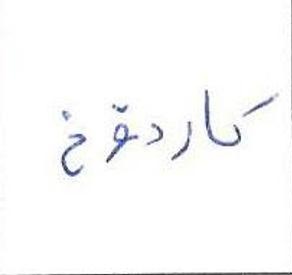 کاردۆخ